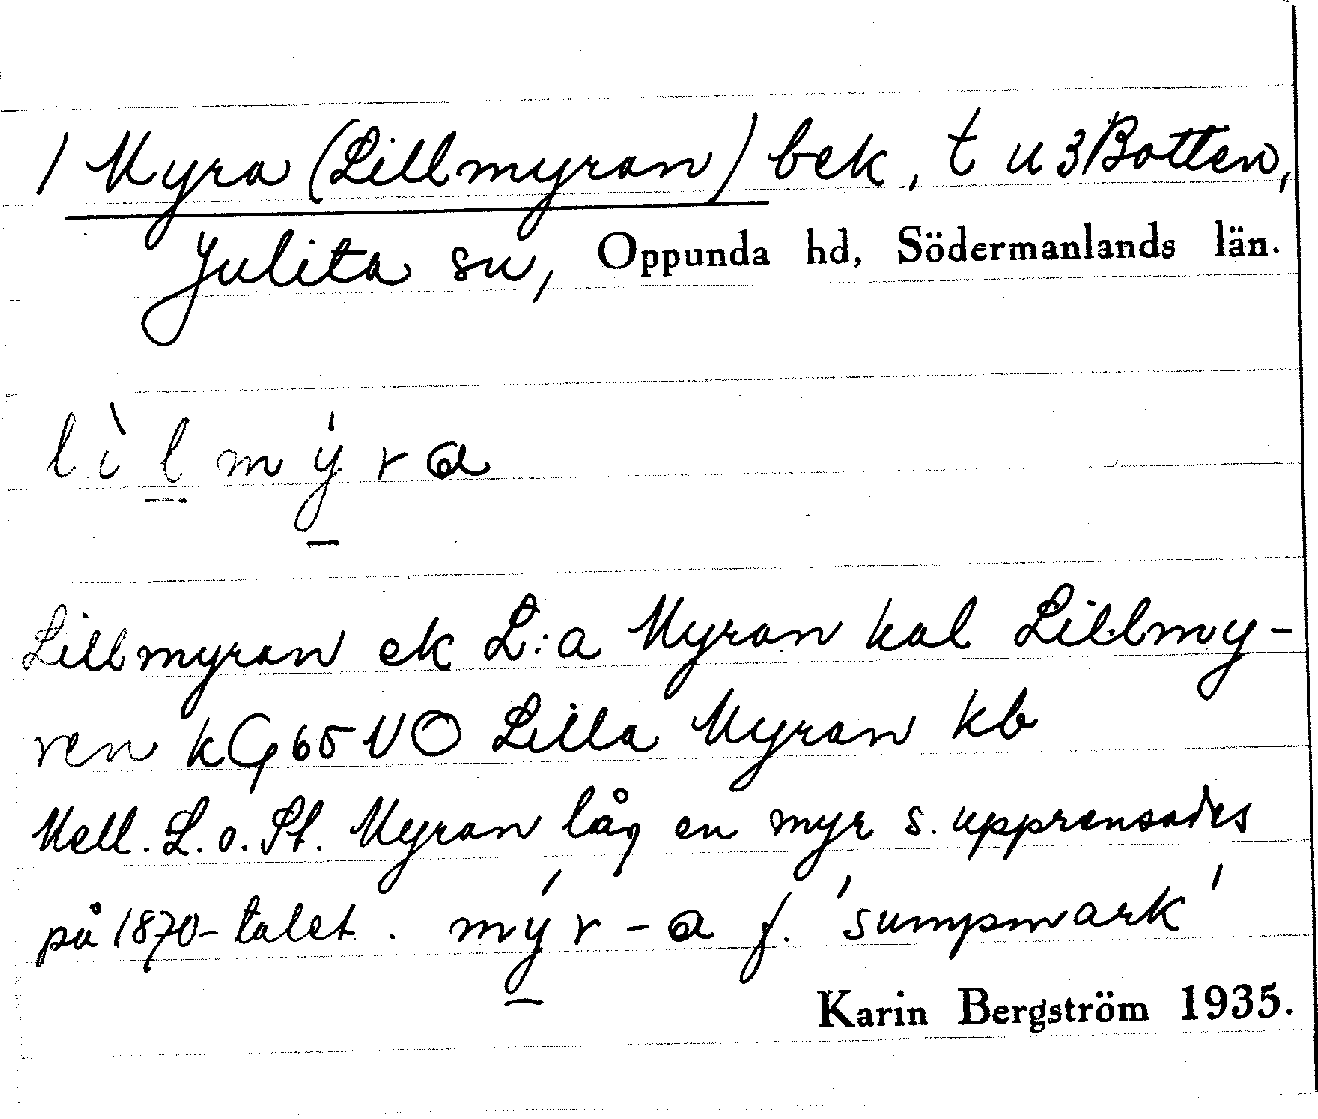 1 Myra (Lillmyran) bek, t u 3/8 Botten,
Julita sn, Oppunda hd, Södermanlands län.
lìlmýra
Lillmyran ek L:a Myran hal Lillmy-
ren kG 65 NO Lilla Myran kb
Mell. L. o. St. Myran låg en myr s. upprensades
på 1870-talet. mýr-a f. 'sumpmark'
Karin Bergström 1935.